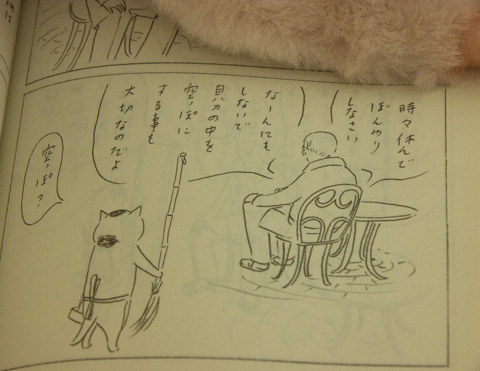 時々休んで
ぼんやり
しなさい
なーんにも
しないで
頭の中を
空っぽに
する事も
大切なのだよ
空っぽ?